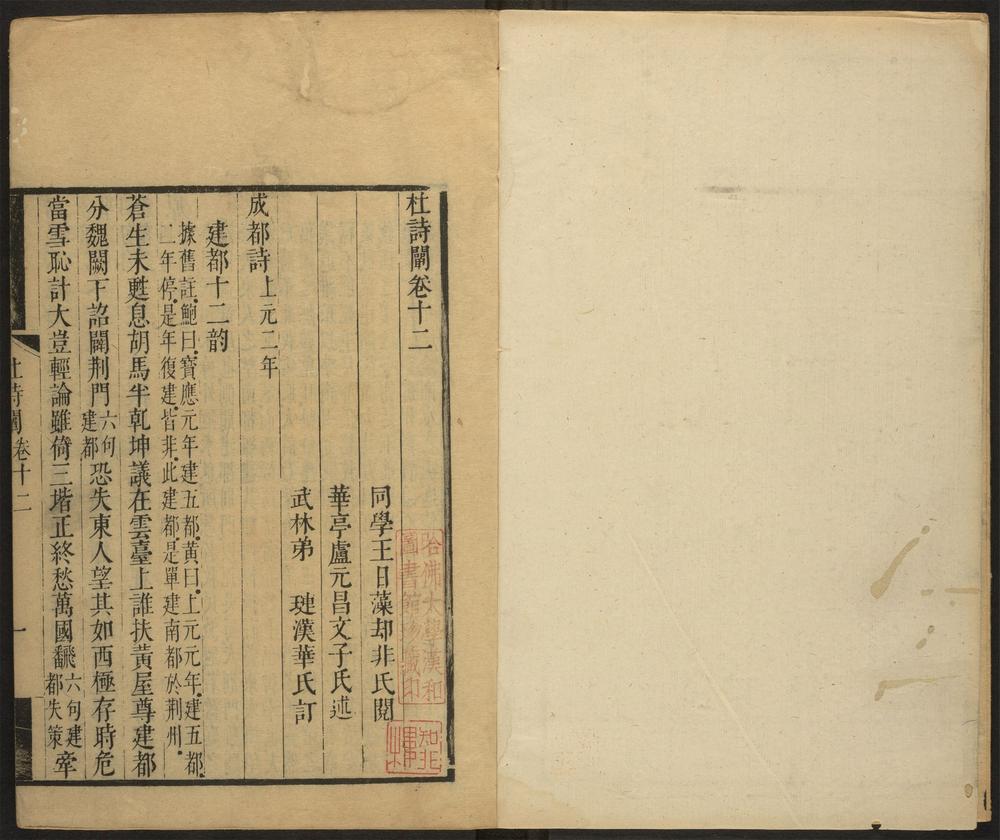 杜詩闡卷十二
同學王日藻却非氏閱
華亭盧元昌文子氏述
武林弟 璉漢華氏訂
成都詩上元二年
建都十二韵
據舊註鮑曰寶應元年建五都黃曰上元元年建五都
二年停是年復建皆非此建都是單建南都於荆州
蒼生未甦息胡馬半乾坤議在雲臺上誰扶黃屋尊建都
分魏闕下詔闢荆門六句建都恐失東人望其如西極存時危
當雪恥計大豈輕論雖倚三堦正終愁萬國飜六句建都失策牽
杜詩闡卷十二
一
哈佛大學漢和
圖書館珍藏印
知非